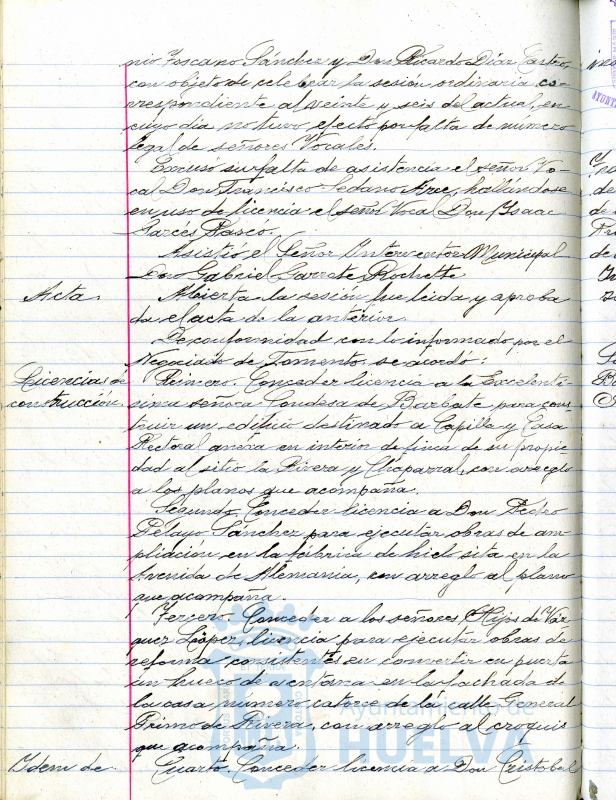 nio Toscano Sánchez y Don Ricardo Díaz Castro,
con objeto de celebrar la sesión ordinaria co-
rrespondiente al veinte y seis del actual, en
cuyo día no tuvo efecto por falta de número
legal de señores Vocales.
Excusó su falta de asistencia el señor Vo-
cal Don Francisco Sedano Arce, hallándose
en uso de licencia el señor Vocal Don Isaac
Garcés Pasco.
Asistió el Señor Interventor Municipal
Don Gabriel Garrote Rochette
Acta. Abierta la sesión fue leida y aproba
da el acta de la antérior.
De conformidad con lo informado por el
Negociado de Fomento se acordó:
Licencias de Primero. Conceder licencia a la Excelentí-
construcción. sima señora Condesa de Barbate para cons-
truir un edificio destinado a Capilla y Casa
Rectoral anéxa en interior de finca de su propie
dad al sitio la Rivera y Chaparral, con arreglo
a los planos que acompaña.
Segundo. Conceder licencia a Don Pedro
Pelayo Sánchez para ejecutar obras de am-
pliación en la fábrica de hielo sita en la
Avenida de Alemania, con arreglo al plano
que acompaña.
Tercero. Conceder a los señores Hijos de Váz
quez López, licencia para ejecutar obras de
reforma consistentes en convertir en puerta
un hueco de ventana en la fachada de
la casa número catorce de la calle General
Primo de Rivera, con arreglo al croquis
que acompaña.
Idem de Cuarto. Conceder licencia a Don Cristobal
Ayuntamiento de
HUELVA